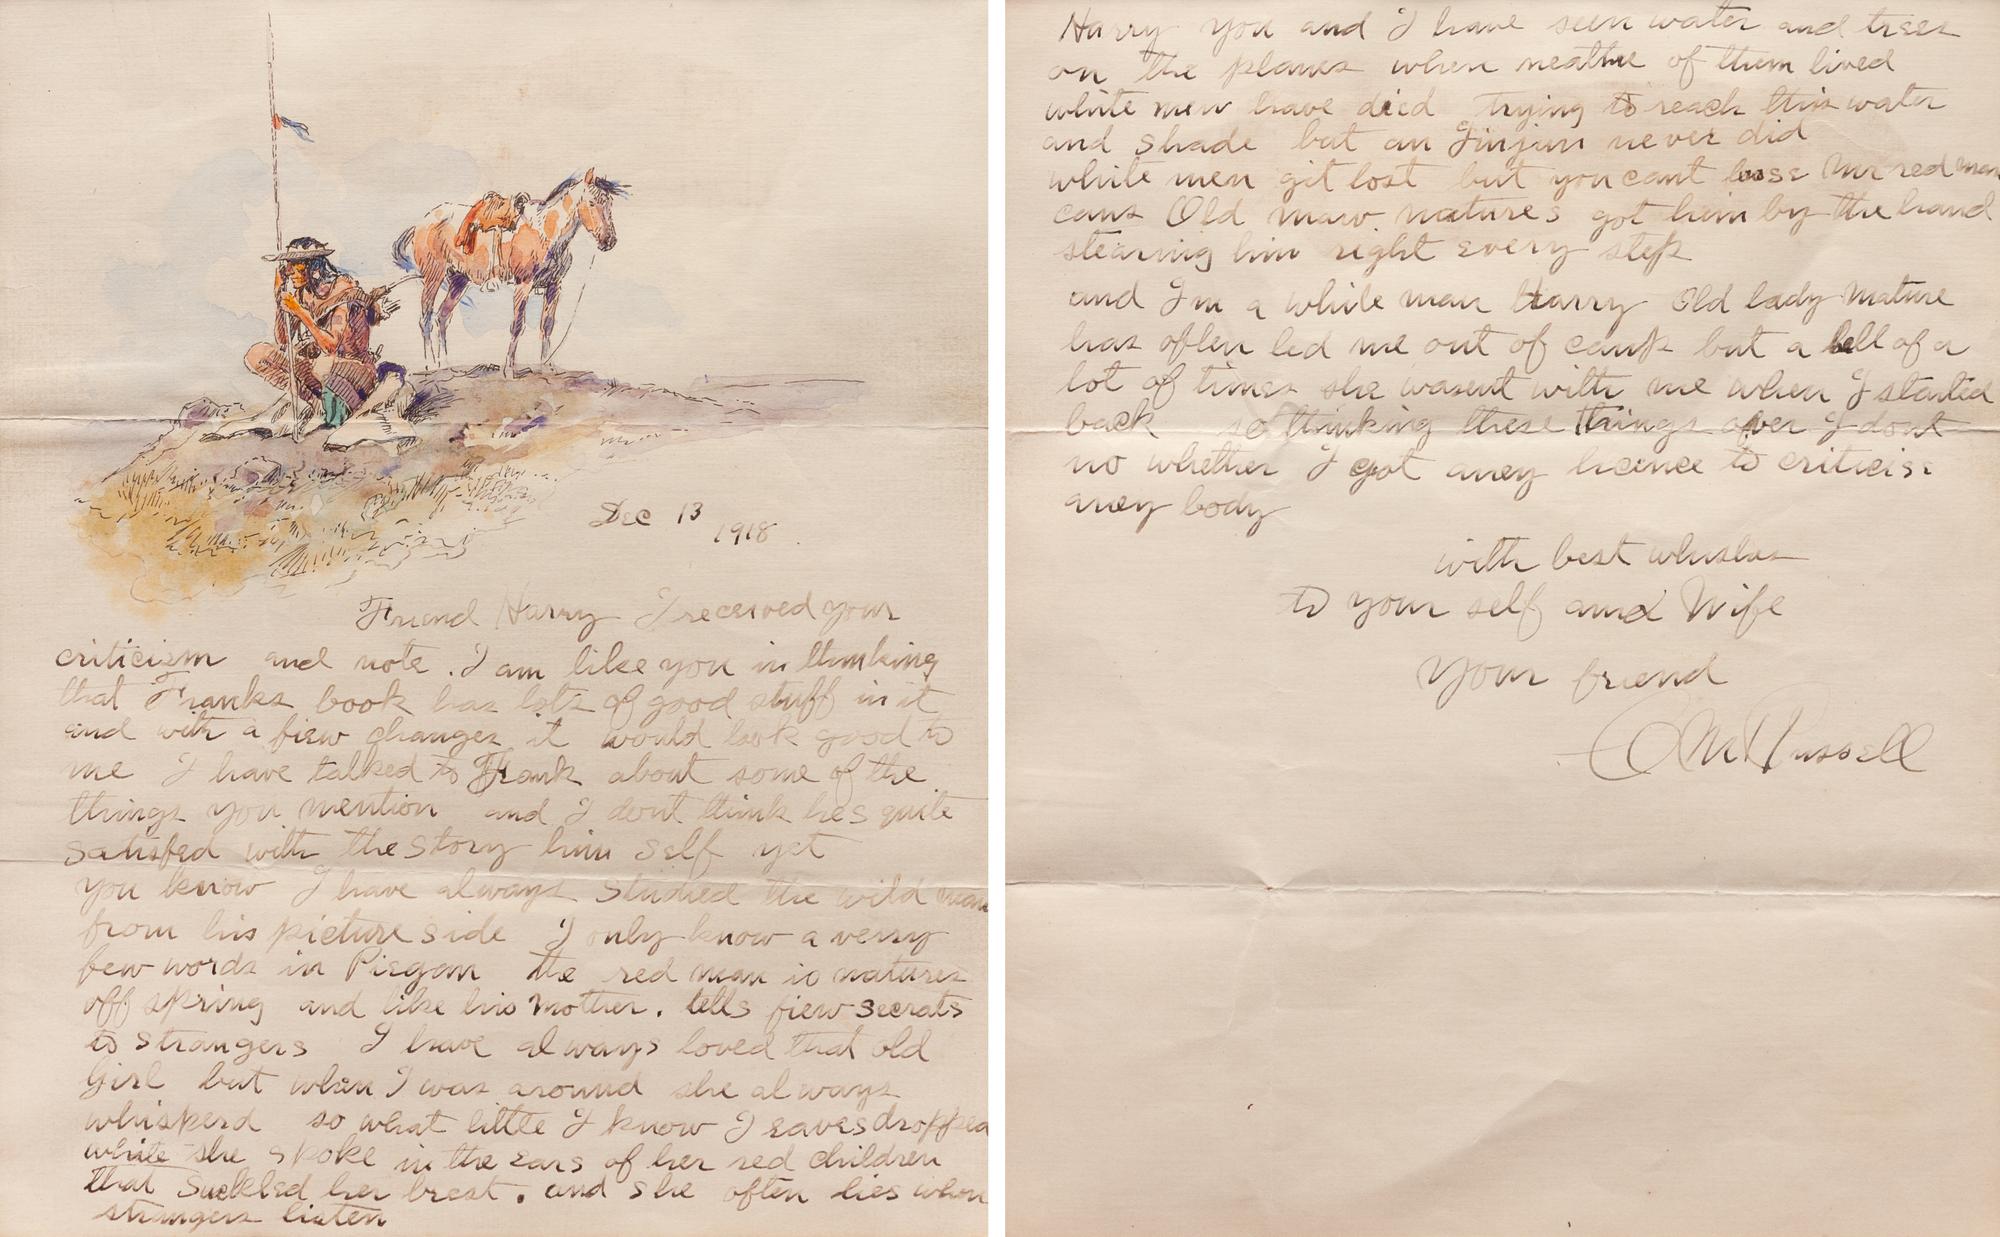 Dec 13
1918
Friend Harry I received your
criticism and note . I am like you in thinking
that Franks book has lots of good stuff in it
and with a fiew changes it would look good to
me I have talked to Frank about some of the
things you mention and I dont think hes quite
satisfed with the story him self yet
you know I have always studied the wild man
from his picture side I only know a verry
few words in Piegan the red man is natures
off spring and like his mother . tells fiew secrats
to strangers I have always loved that old
Girl but when I was around she always
whisperd so what little I know I eavesdropped
while she spoke in the ears of her red children
that suckled her brest . and she often lies when
strangers listen
Harry you and I have seen water and trees
on the planes when neathre of them lived
white men have died trying to reach this water
and shade but an Injun never did
white men git lost but you cant loose Mr red man
caus Old maw natures got him by the hand
stearing him right every step
and Im a white man Harry Old lady Nature
has often led me out of camp but a hell of a
lot of times she wasent with me when I started
back so thinking these things over I dont
no whether I got aney licence to criticise
aney body
with best whishes
to your self and Wife
your friend
C M Russell